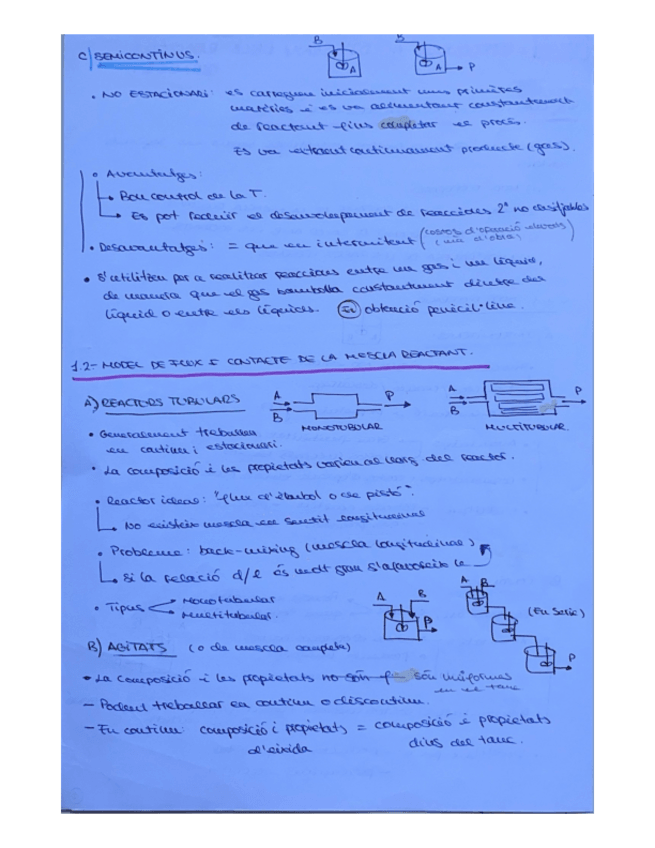 B B
C) SEMICONTÍNUS.
A A P
• NO ESTACIONARI: es carreguen inicialment unes primeres
matèries i es va alimentant constantment
de reactant fins completar el procés.
Es va extraent contínuament producte (gas).
• Avantatges:
Bon control de la T.
Es pot reduir el desenvolupament de reaccions 2ª no desitjables
• Desavantatges: = que en intermitent (costos d'operació elevats
(mà d'obra)
• S'utilitzen per a realitzar reaccions entre un gas i un líquid,
de manera que el gas bombolla constantment dintre del
líquid o entre els líquids. Ex obtenció penicil·lina.
1.2- MODEL DE FLUX I CONTACTE DE LA MESCLA REACTANT.
A) REACTORS TUBULARS A B P A B P
MONOTUBULAR MULTITUBULAR
• Generalment treballen
en continu i estacionari.
• La composició i les propietats varien al llarg del reactor.
• Reactor ideal: "flux d'èmbol o de pistó".
No existeix mescla en sentit longitudinal
• Problema: back-mixing (mescla longitudinal)
Si la relació d/l és molt gran s'afavoreix
• Tipus Monotubular
Multitubular.
A B P A B (En Sèrie) P
B) AGITATS (o de mescla completa)
• La composició i les propietats no són són uniformes
en el tanc
- Poden treballar en continu o discontinu.
- En continu composició i propietats = composició i propietats
d'eixida dins del tanc.